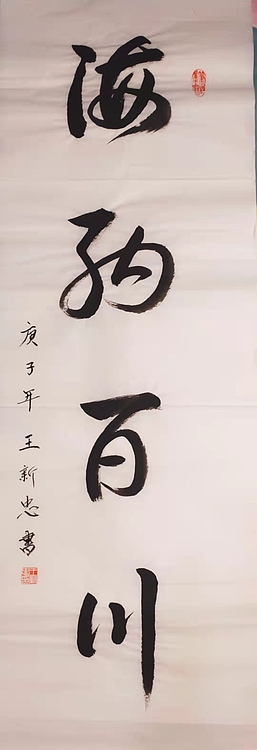 海纳百川
庚子年王新忠書